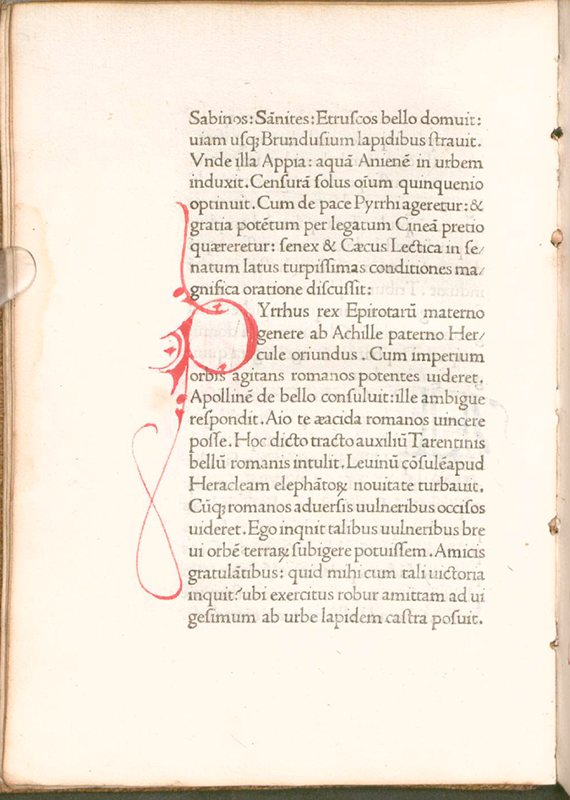 Sabinos: Sānites: Etruſcos bello domuit:
uiam uſq; Brunduſium lapidibus ſtrauit.
Vnde illa Appia: aquā Anienē in urbem
induxit. Cenſurā ſolus oīum quinquenio
optinuit. Cum de pace Pyrrhi ageretur: &
gratia potētum per legatum Cineā pretio
quæreretur: ſenex & Cæcus Lectica in ſe/
natum latus turpiſſimas conditiones ma/
gnifica oratione diſcuſſit:
PYrrhus rex Epirotarū materno
genere ab Achille paterno Her/
cule oriundus. Cum imperium
orbis agitans romanos potentes uideret.
Apollinē de bello conſuluit: ille ambigue
reſpondit. Aio te æacida romanos uincere
poſſe. Hoc dicto tracto auxiliū Tarentinis
bellū romanis intulit. Leuinū cōſulē apud
Heracleam elephātoꝝ nouitate turbauit.
Cūq; romanos aduerſis uulneribus occiſos
uideret. Ego inqnit talibus uulneribus bre
ui orbē terraꝝ ſubigere potuiſſem. Amicis
gratulātibus: quid mihi cum tali uictoria
inquit? ubi exercitus robur amittam ad ui
geſimum ab urbe lapidem caſtra poſuit.